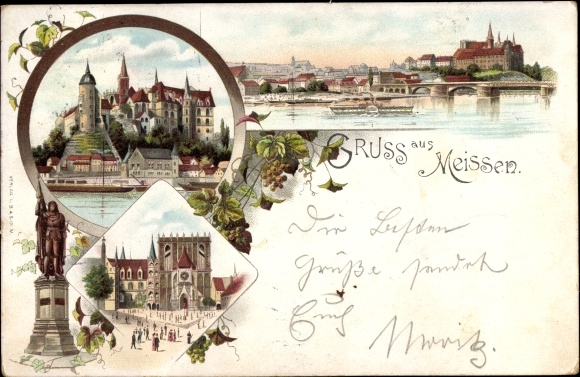 Gruss aus Meissen.
Die Besten
Grüße sendet
Euch
Moritz.